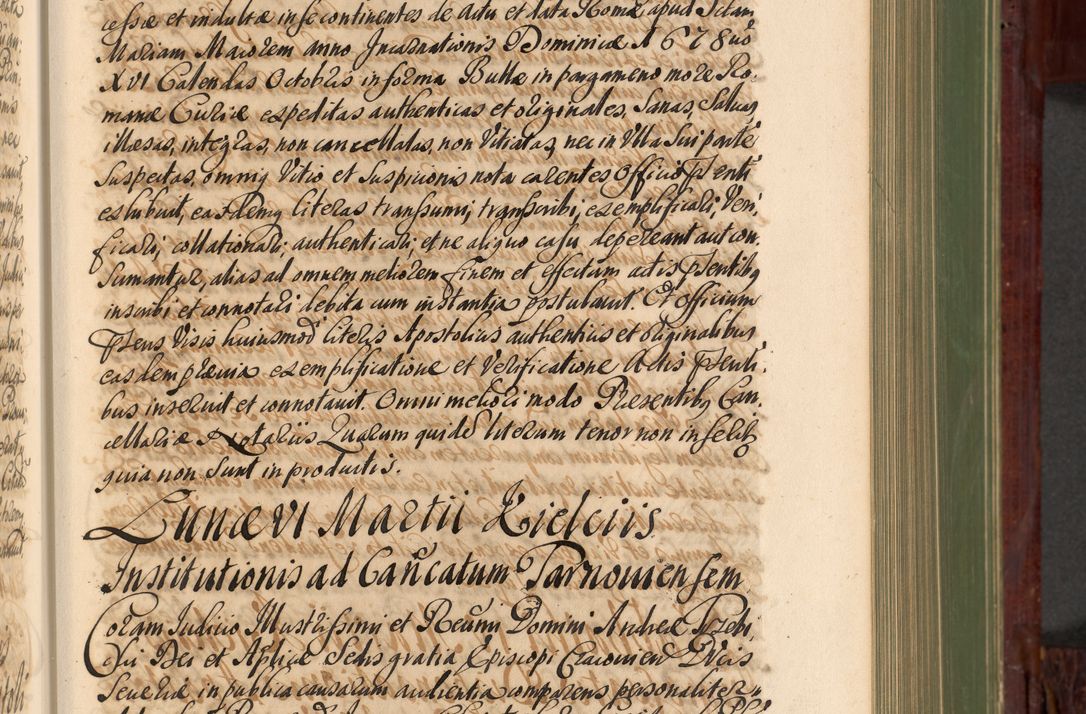 cessæ et indultæ in se continentes de Actu et data Romæ apud Sctam
Mariam Maiorem anno Incarnationis Dominicæ 1678uo
XVI Calendas Octobris in forma Bullæ in pargameno more Ro-
manæ Curiæ expeditas authenticas et originales, Sanas, Saluas
illæsas, integras, non cancellatas, non Vitiatas, nec in Vlla Sui parte
Suspectas, omniq Vitio et Suspicionis nota carentes Officio Pñti
exhibuit, easdemq literas transumi, transcribi, exemplificari, Veri,
ficari, collationari, authenticari, et ne aliquo casu depereant aut con,
Sumantur, alias ad omnem meliorem finem et effectum actis Pñtibq
inscribi et connotari debita cum instantia postulauit. Et Officium
Pñens Visis huiusmodi literis Apostolicis authenticis et originalibus
easdem præuia exemplificatione et Verificatione Actis Pñti,
bus inseruit et connotauit. Omni meliori modo Præsentibq Can,
cellariæ Notariis. Quarum quidē literum tenor non inserib
quia non Sunt in productis.
Lunæ VI Martii Kielciis.
Institutionis ad Cañcatum Tarnouiensem
Coram Iudicio Illustrissimi et Reuñi Domini Andreæ Trzebi,
cki Dei et Aplicæ Sedis gratia Episcopi Cracouien Ducis
Seueriæ in publica causarum audientia comparens personaliter